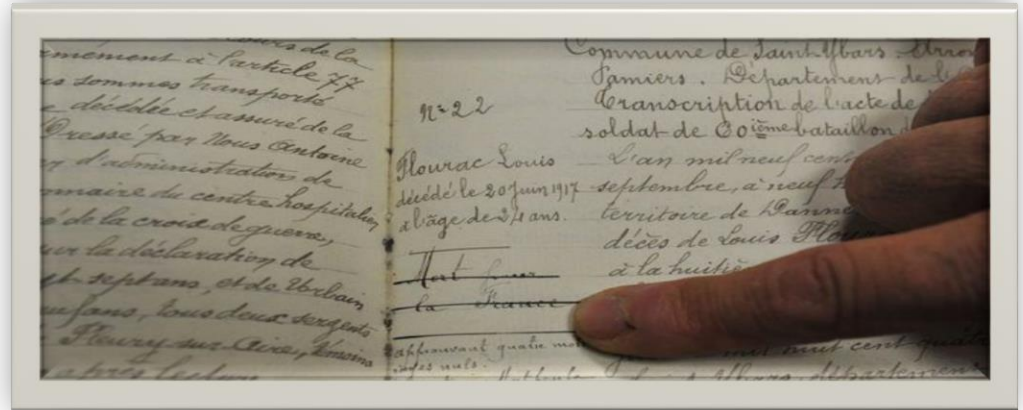 de la
à l'article 77
sommes transporté
décédée et assuré de la
Dressé par Nous Antoine
d'administration de
du centre hospitalier
de la croix de guerre,
la déclaration de
sept ans, et de Urbain
tous deux sergents
Fleury-sur-Aire, témoins
après lecture
N° 22
Flourac Louis
décédé le 20 Juin 1917
à l'âge de 24 ans.
Mort pour
la France
approuvant quatre mots
rayés nuls.
Commune de Saint-Ybars. Arron
Pamiers. Département de
Transcription de l'acte de
soldat de 60ième bataillon
L'an mil neuf cent
septembre, à neuf
territoire de
décès de Louis
à la
mil huit cent
Ybars, département